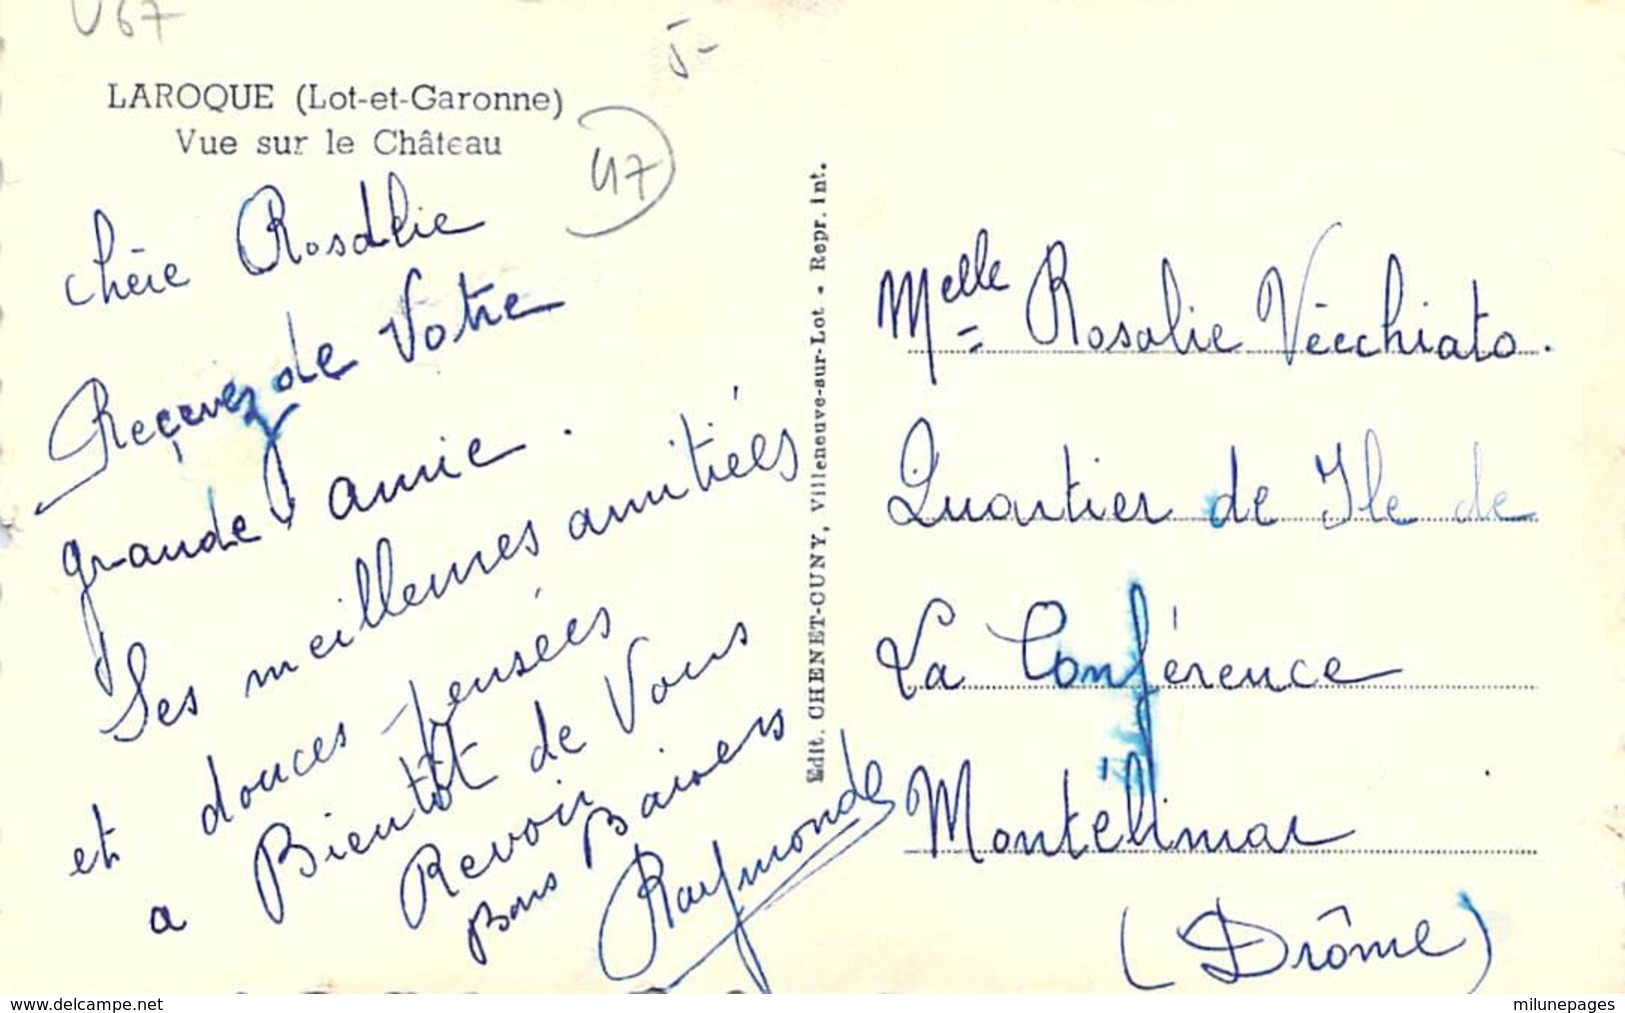 V67
5-
LAROQUE (Lot-et-Garonne)
Vue sur le Château
47
chère Rosalie
Reçevez de Votre
grande amie.
Ses meilleures amitiées
et douces pensées
a Bientôt de Vous
Revoir
Bons Baisers
Raymonde
Edit. CHENET-CUNY, Villeneuve-sur-Lot - Repr. int.
Melle Rosalie Vécchiato.
Quartier de Ile de
La Conférence
Montélimar
(Drôme)
www.delcampe.net
milunepages